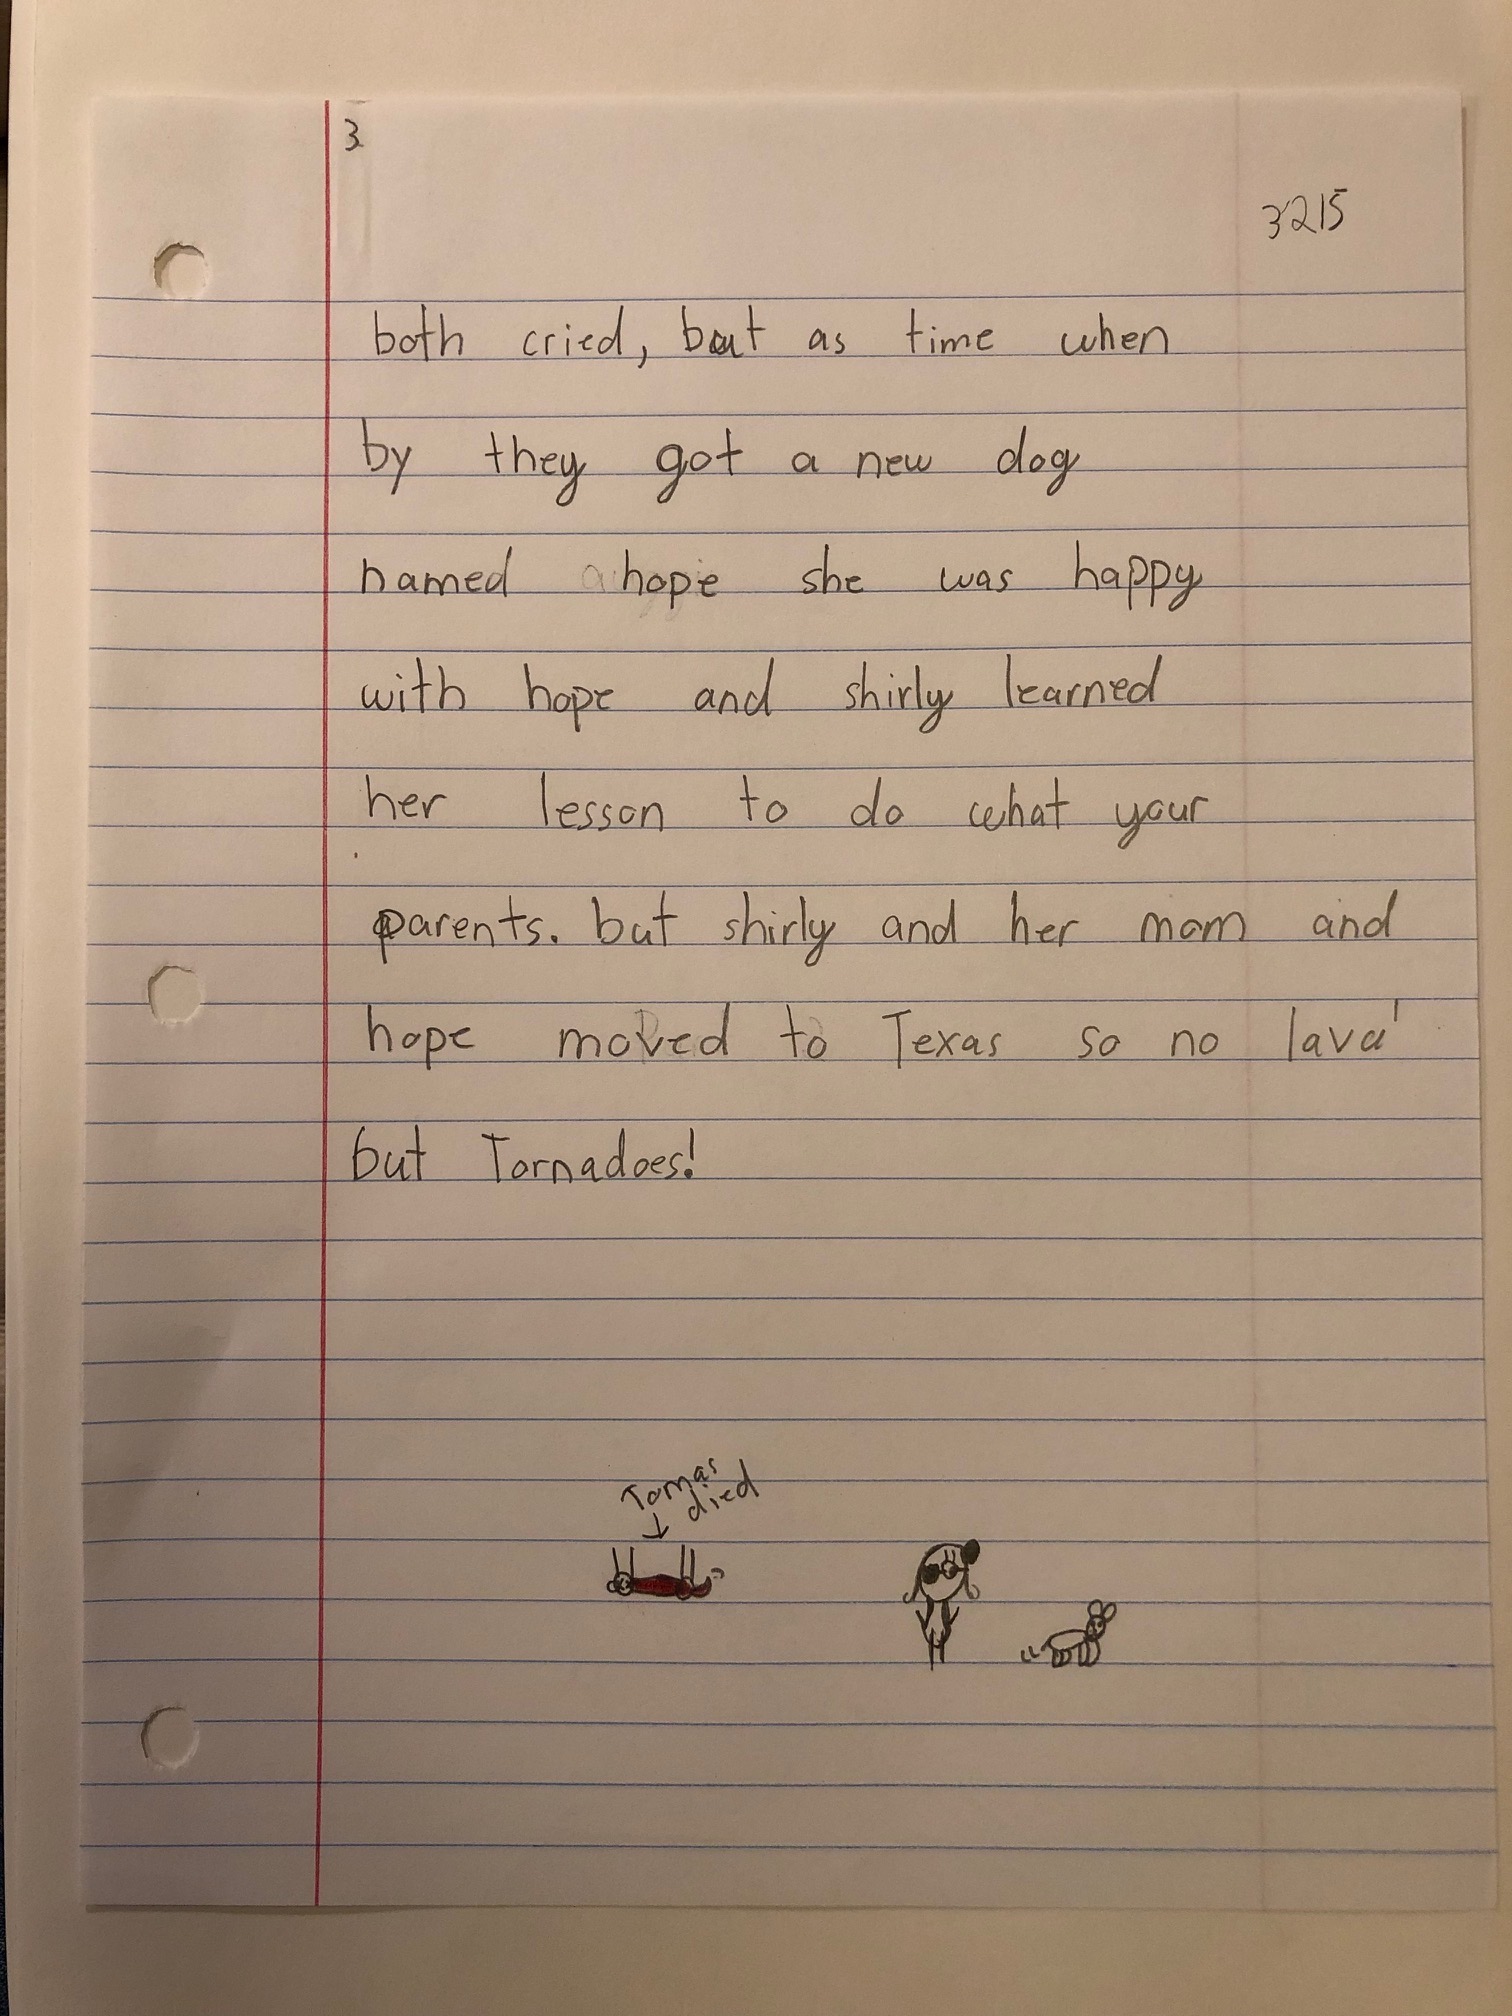 3
3215
both cried, but as time when
by they got a new dog
named hope she was happy
with hope and shirly learned
her lesson to do what your
parents. but shirly and her mom and
hope moved to Texas so no lava'
but Tornadoes!
Tomas
died